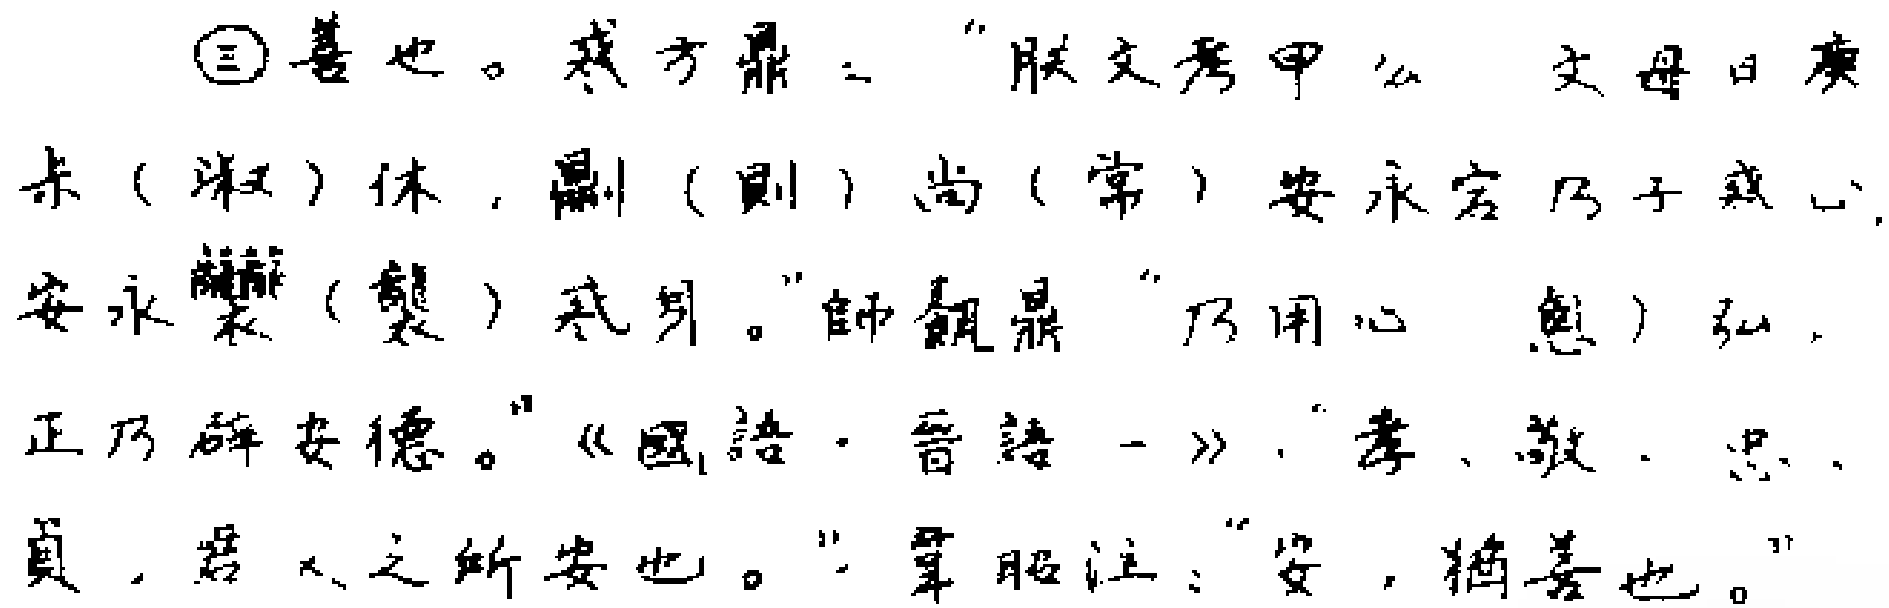 ㊂善也。𢦚方鼎：“朕文考甲公 文母日庚
尗（淑）休，鼏（則）尚（常）安永宕乃子𢦚心，
安永襲（襲）𢦚身。”師𩛥鼎“乃用心 ）弘，
正乃辟安德。”《國語·晉語一》：“孝、敬、忠、
貞，君父之所安也。”韋昭注：“安，猶善也。”